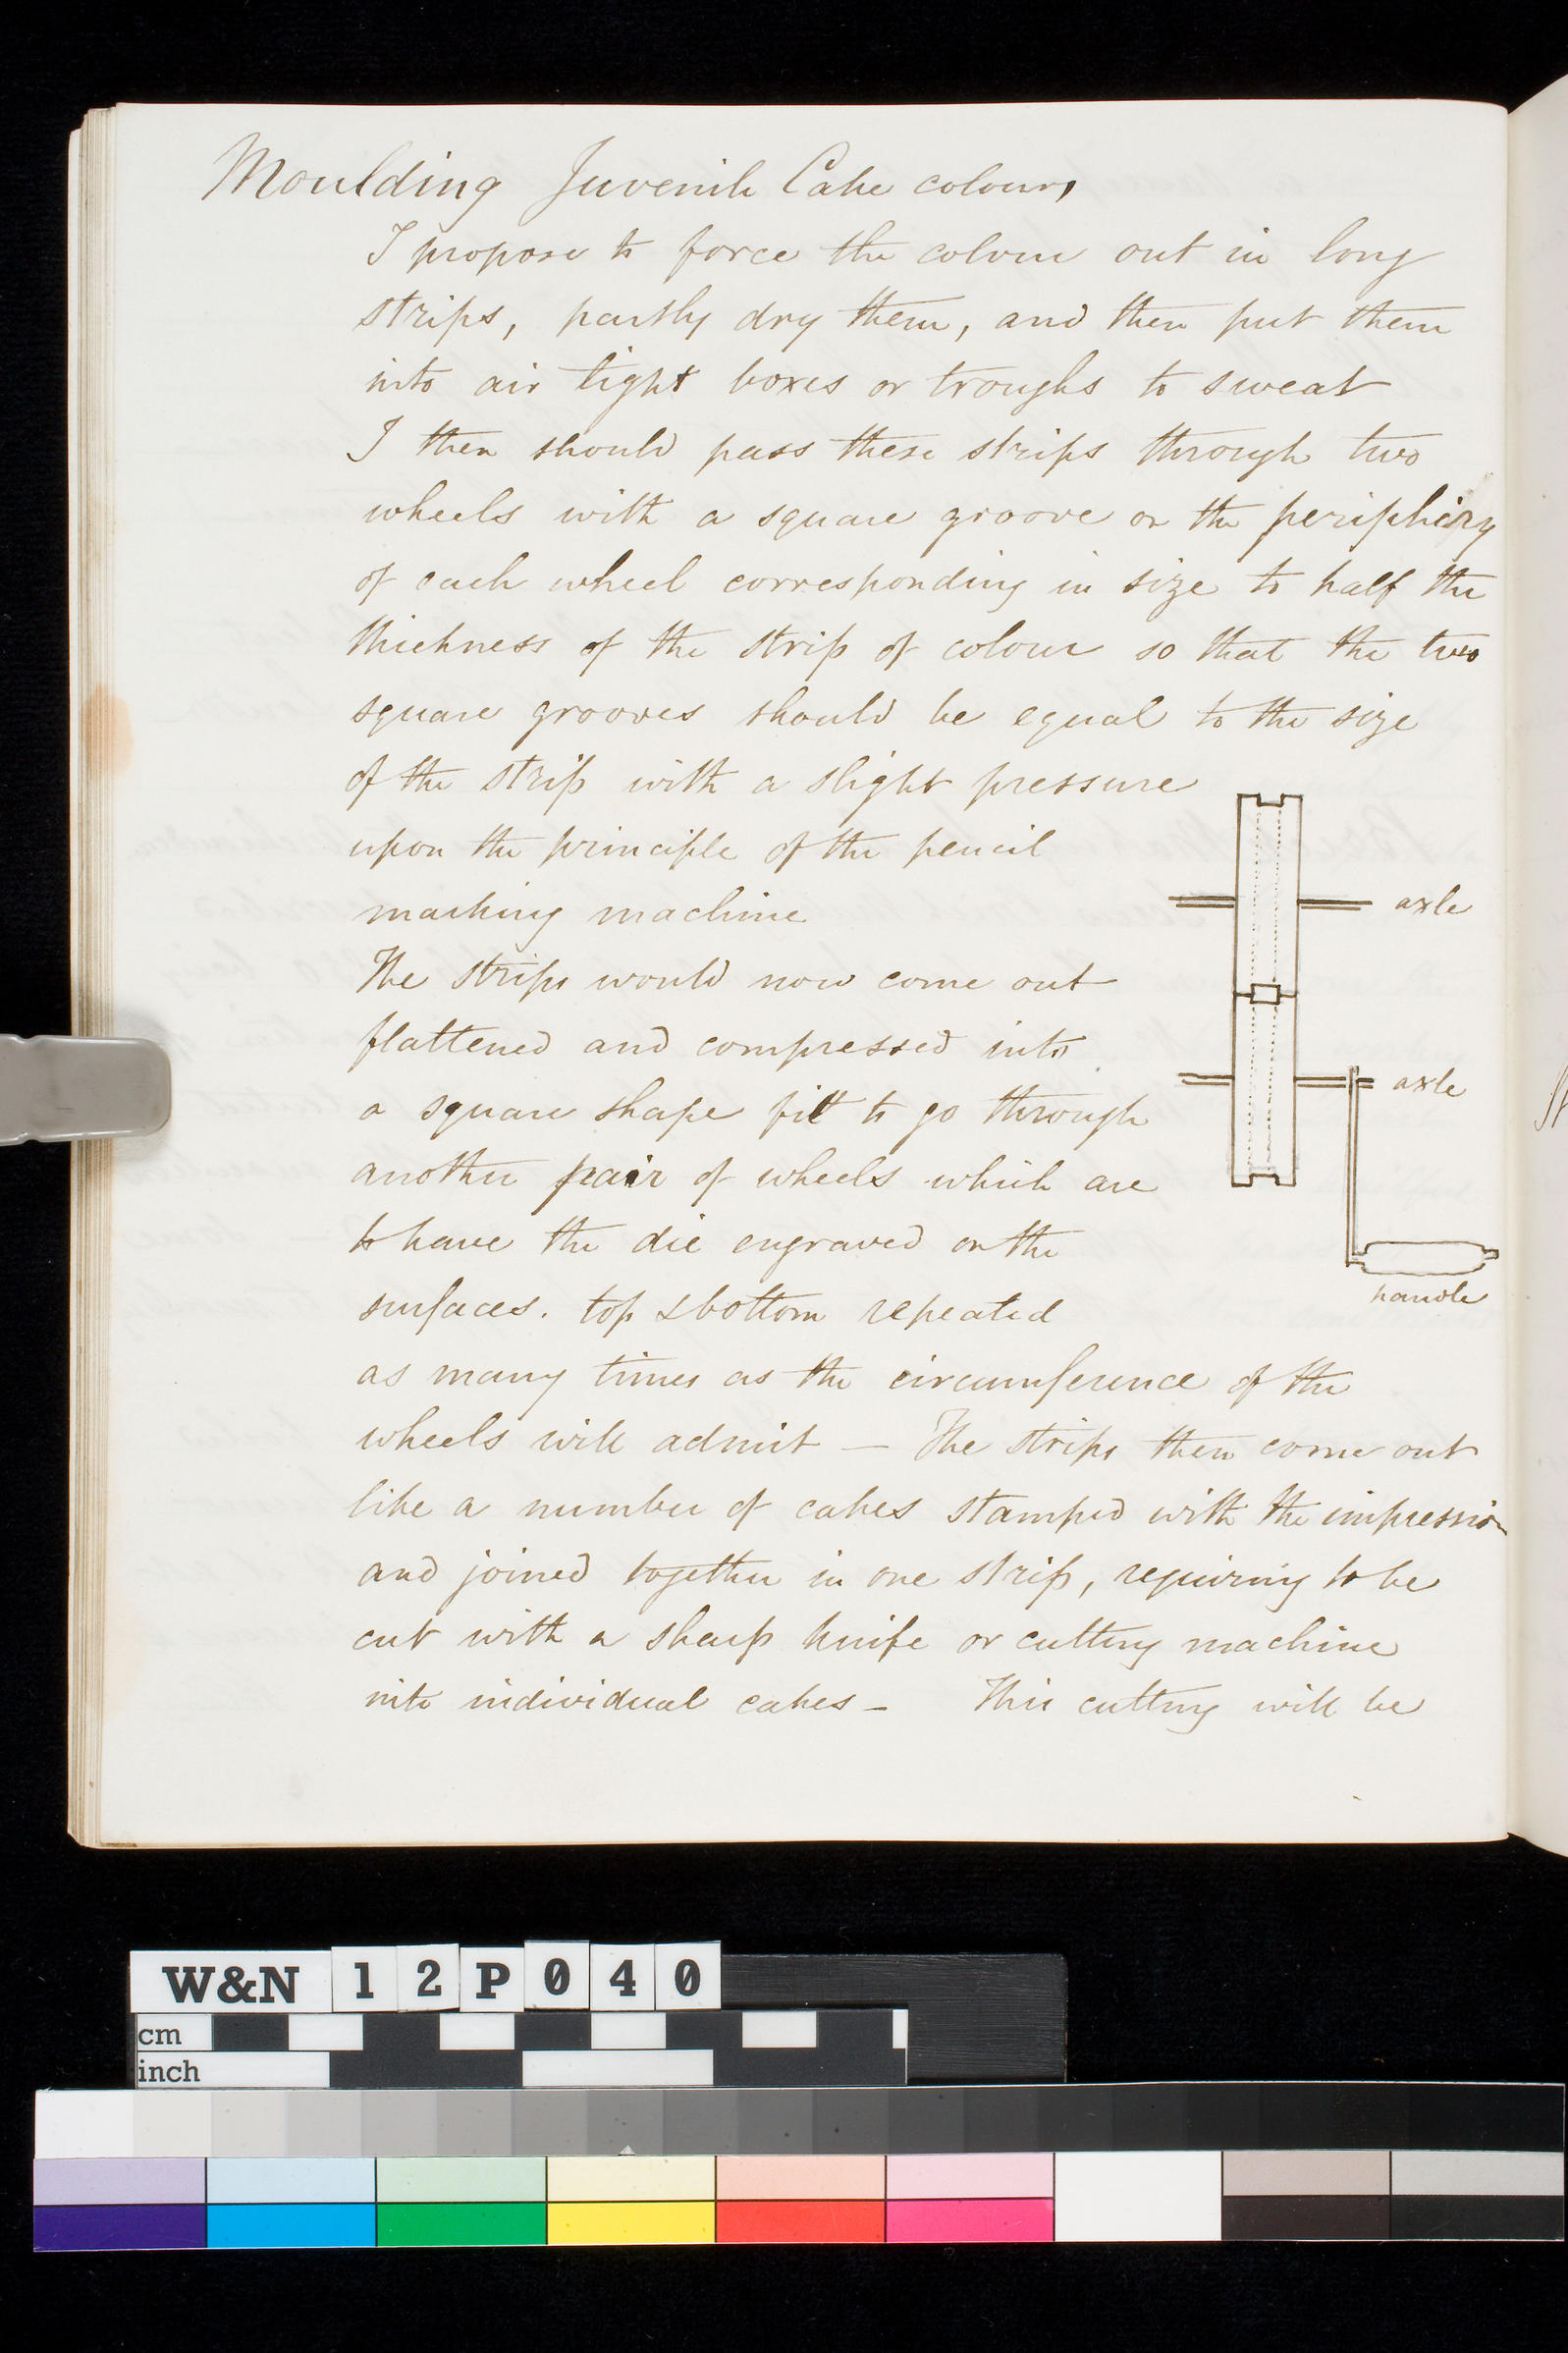 Moulding Juvenile Cake colours
I propose to force the colour out in long
strips, partly dry them, and then put them
into air tight boxes or troughs to sweat
I then should pass these strips through two
wheels with a square groove on the periphery
of each wheel corresponding in size to half the
thickness of the strip of colour so that the two
square grooves should be equal to the size
of the strip with a slight pressure
upon the principle of the pencil
marking machine
axle
The strips would now come out
flattened and compressed into
axle
a square shape fitt to go through
another pair of wheels which are
to have the die engraved on the
handle
surfaces. top & bottom repeated
as many times as the circumference of the
wheels will admit — The strips then come out
like a number of cakes stamped with the impression
and joined together in one strip, requiring to be
cut with a sharp knife or cutting machine
into individual cakes — This cutting will be
W&N 12P040
cm
inch